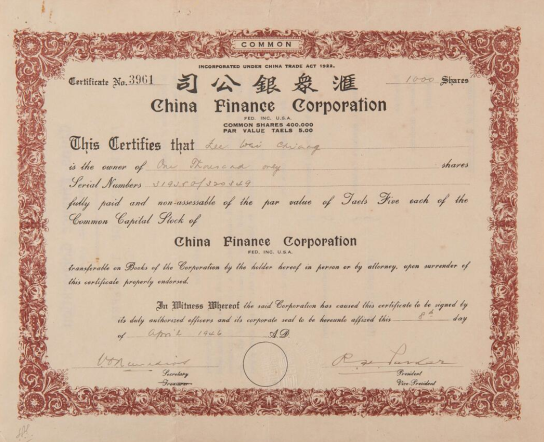 COMMON
INCORPORATED UNDER CHINA TRADE ACT 1922.
Certificate No. 3961
1000 Shares
司公銀眾滙
China Finance Corporation
FED. INC. U.S.A.
COMMON SHARES 400,000
PAR VALUE TAELS 5.00
This Certifies that Lee Wei Chiang
is the owner of One Thousand only shares
Serial Numbers
fully paid and non-assessable of the par value of Taels Five each of the
Common Capital Stock of
China Finance Corporation
FED. INC. U.S.A.
transferable on Books of the Corporation by the holder hereof in person or by attorney, upon surrender of
this certificate properly endorsed.
In Witness Whereof the said Corporation has caused this certificate to be signed by
its duly authorized officers and its corporate seal to be hereunto affixed this 8th day
of April A.D.
Secretary
Treasurer
President
Vice-President